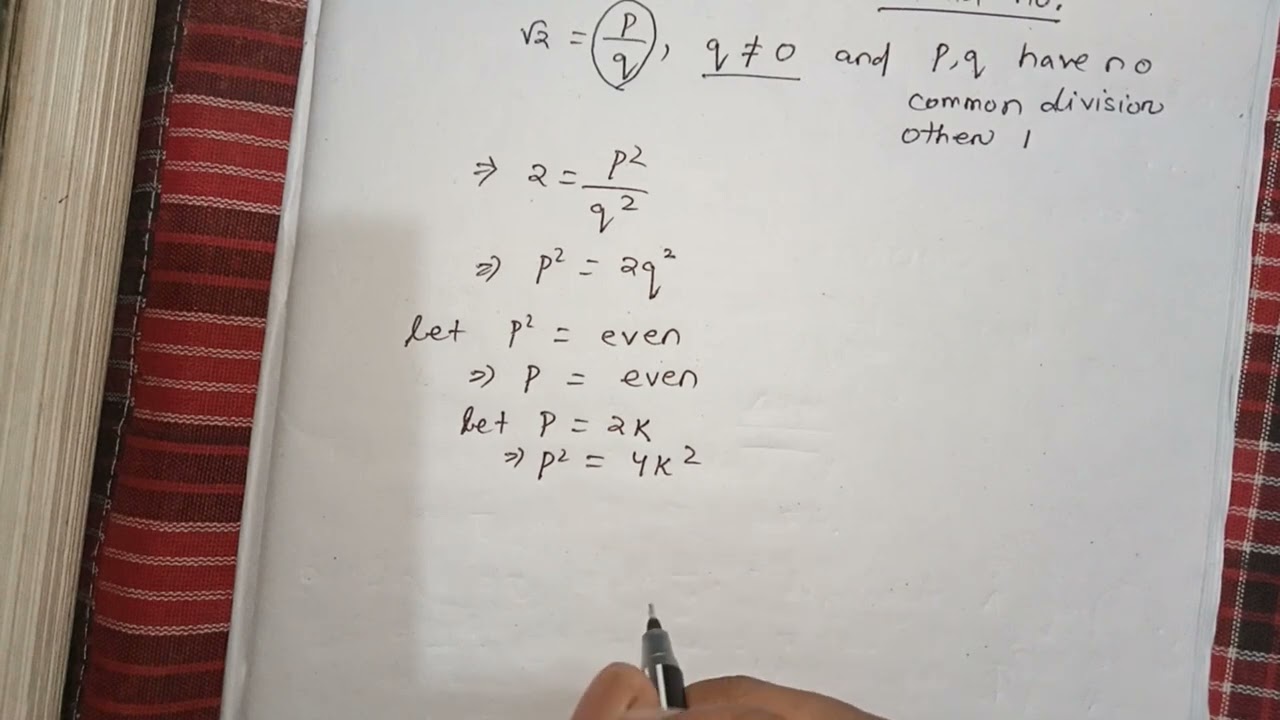 no.
√2 = p/q, q ≠ 0 and P,q have no
common division
other 1
⇒ 2 = p²/q²
⇒ p² = 2q²
let p² = even
⇒ p = even
let p = 2k
⇒ p² = 4k²